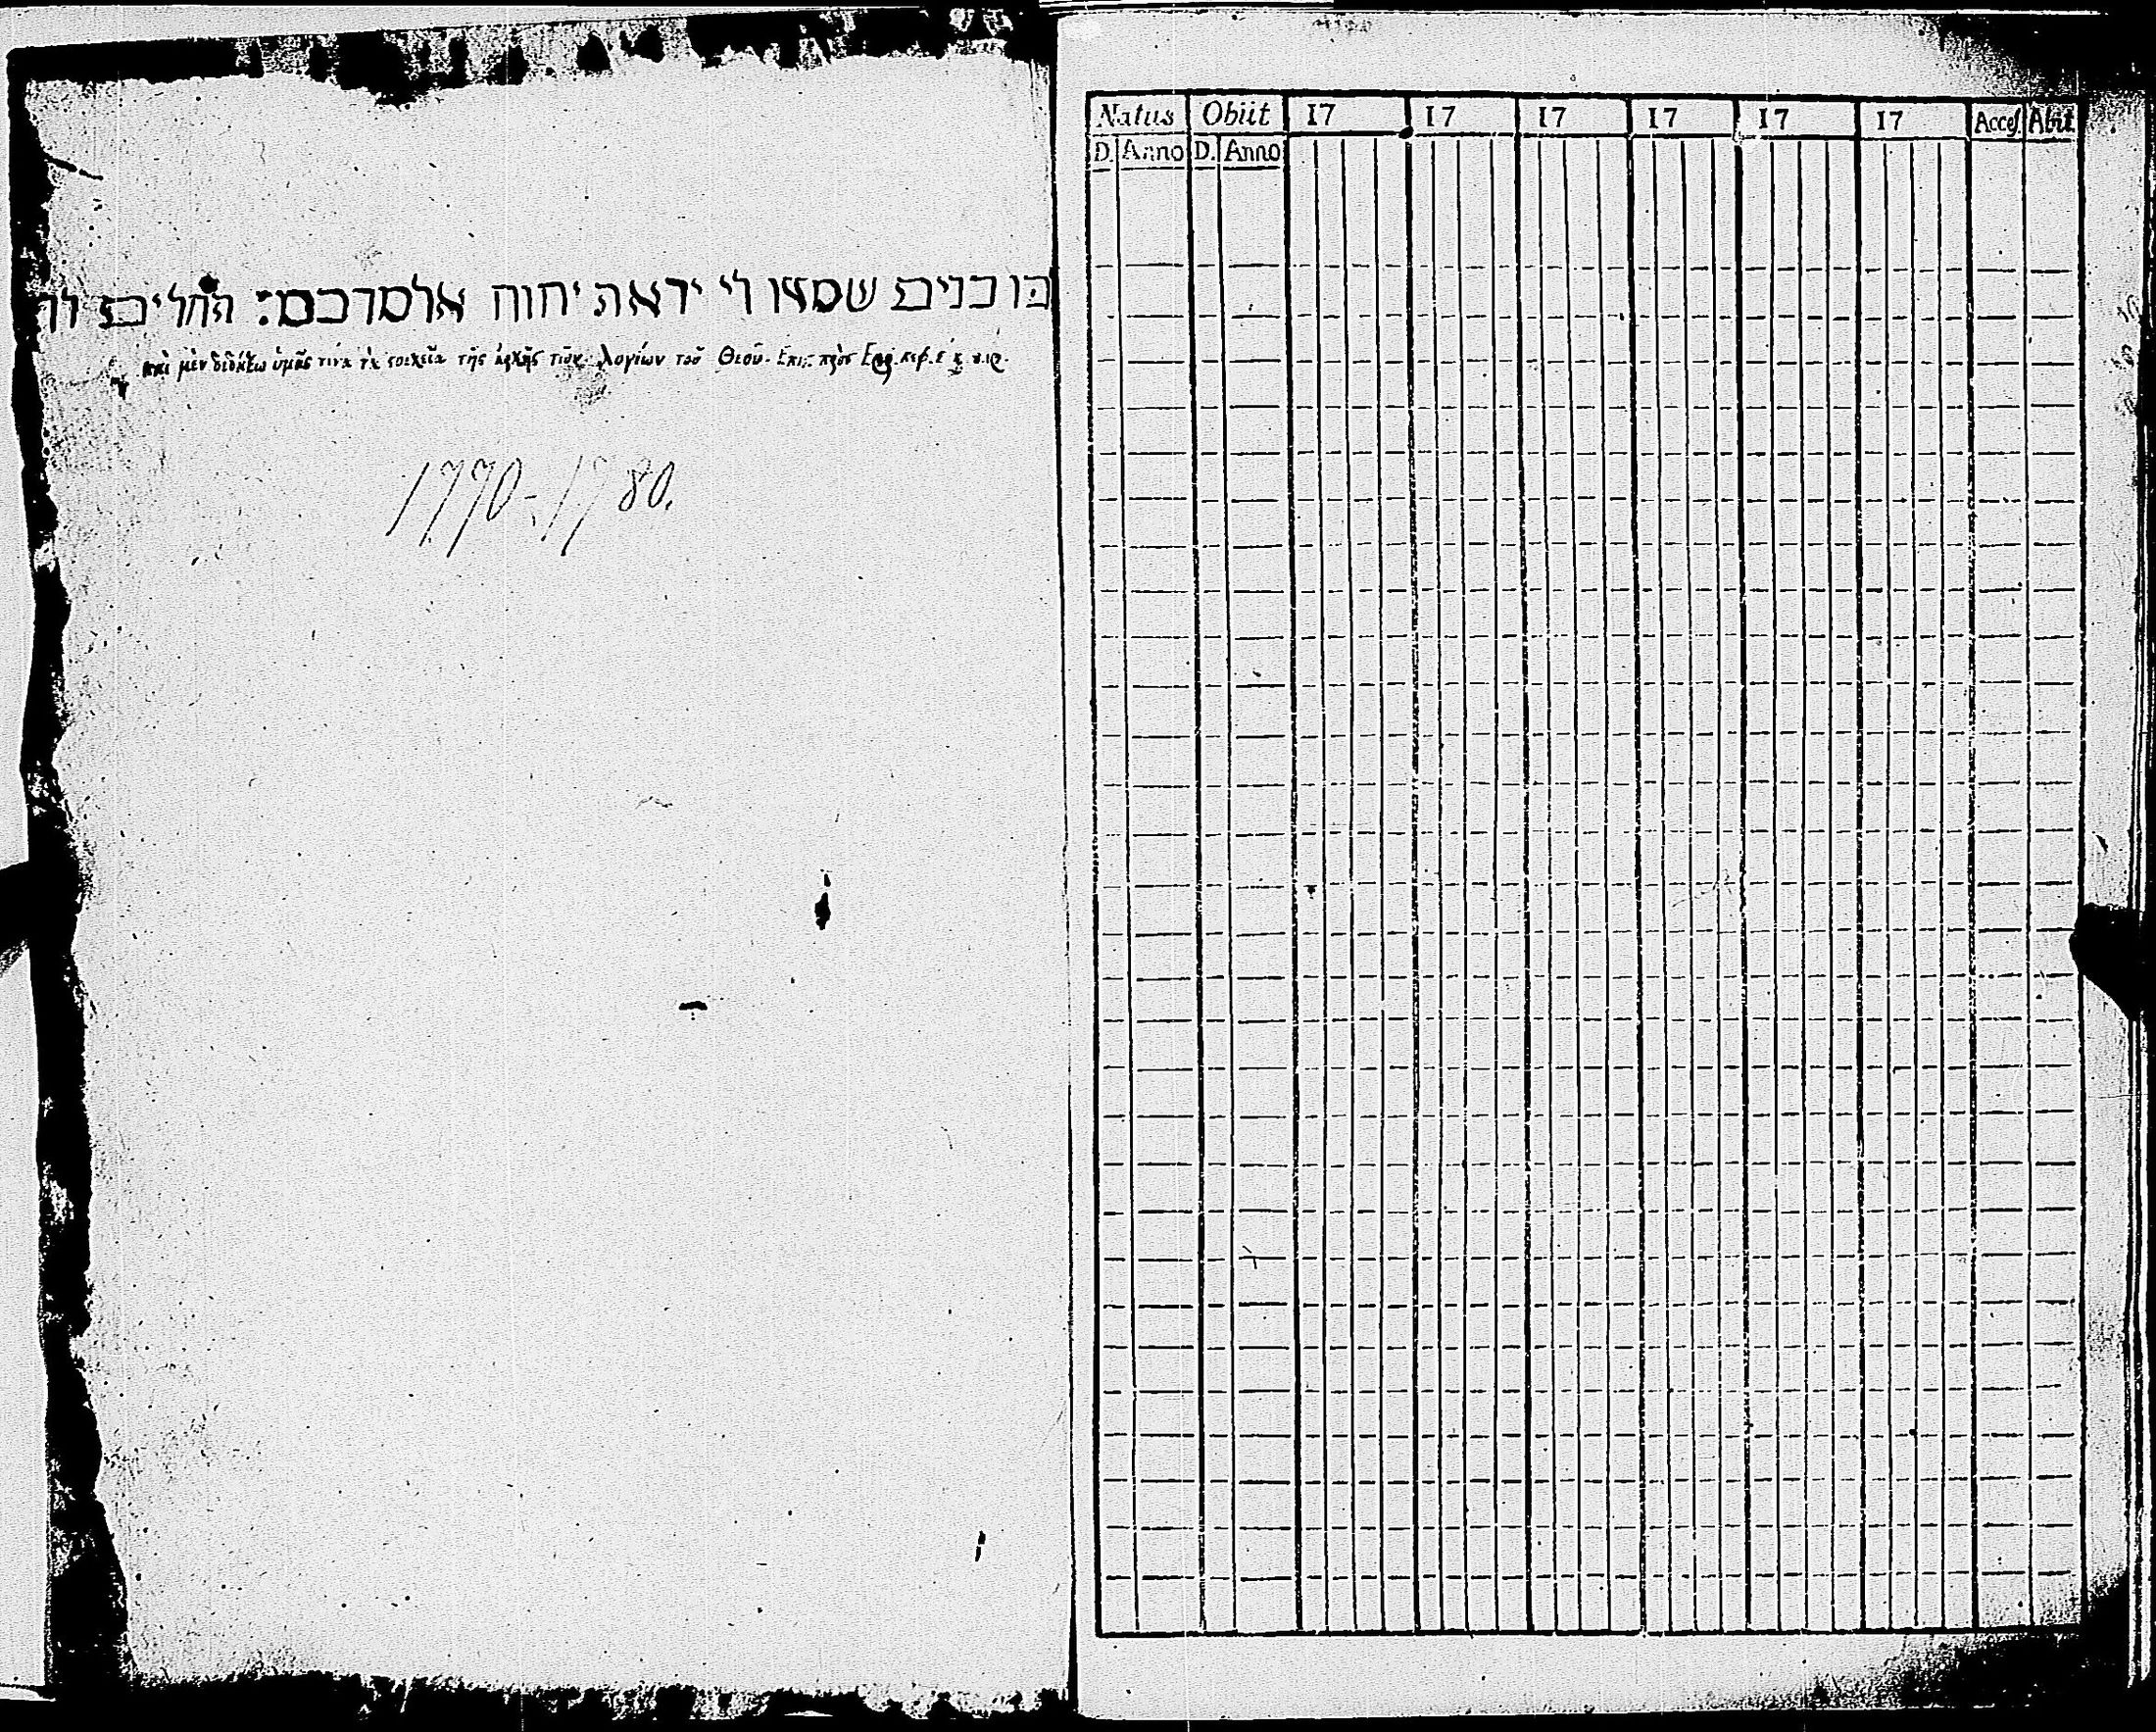 כו בנים שמעו לי יראת יהוה אלמדכם: תהלים לד
καὶ μὲν διδάξω ὑμᾶς τινα τὰ ςοιχεῖα τῆς ἀρχῆς τῶν λογίων τοῦ Θεοῦ. Επις. πρὸς Εβρ. κεφ. ε
1770-1780.
Natus Obiit 17 17 17 17 17 17 Acces. Abiit
D. Anno D. Anno